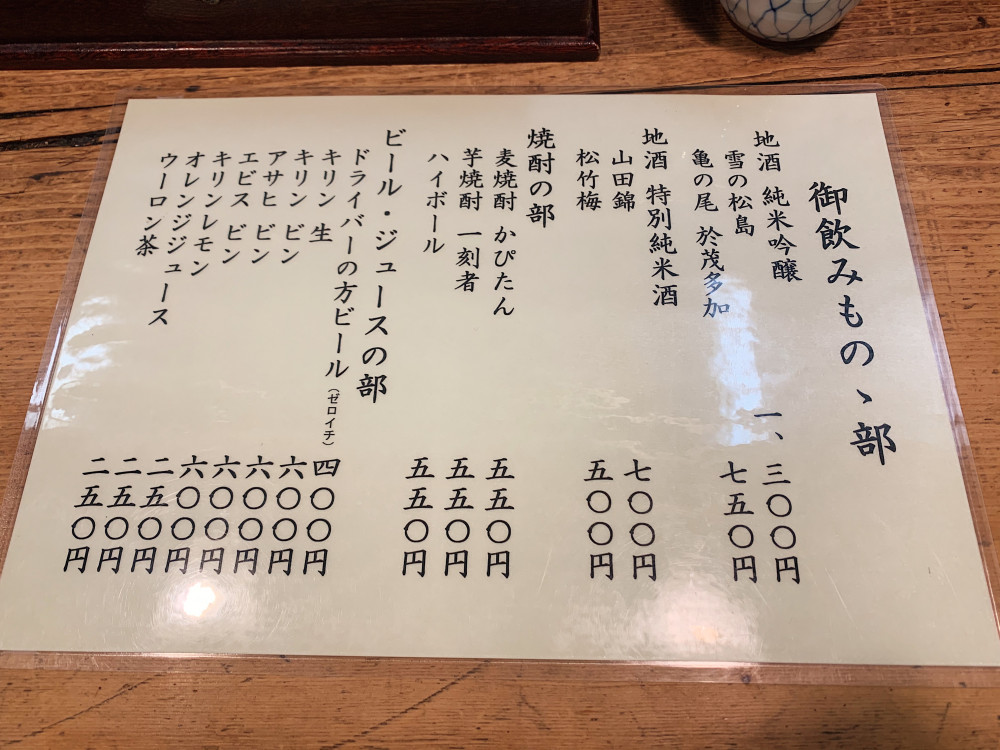 御飲みものゝ部
地酒 純米吟醸
雪の松島 一、三〇〇円
亀の尾 於茂多加 七五〇円
地酒 特別純米酒
山田錦 七〇〇円
松竹梅 五〇〇円
焼酎の部
麦焼酎 かぴたん 五五〇円
芋焼酎 一刻者 五五〇円
ハイボール 五五〇円
ビール・ジュースの部
ドライバーの方ビール(ゼロイチ) 四〇〇円
キリン 生 六〇〇円
キリン ビン 六〇〇円
アサヒ ビン 六〇〇円
エビス ビン 六〇〇円
キリンレモン 二五〇円
オレンジジュース 二五〇円
ウーロン茶 二五〇円